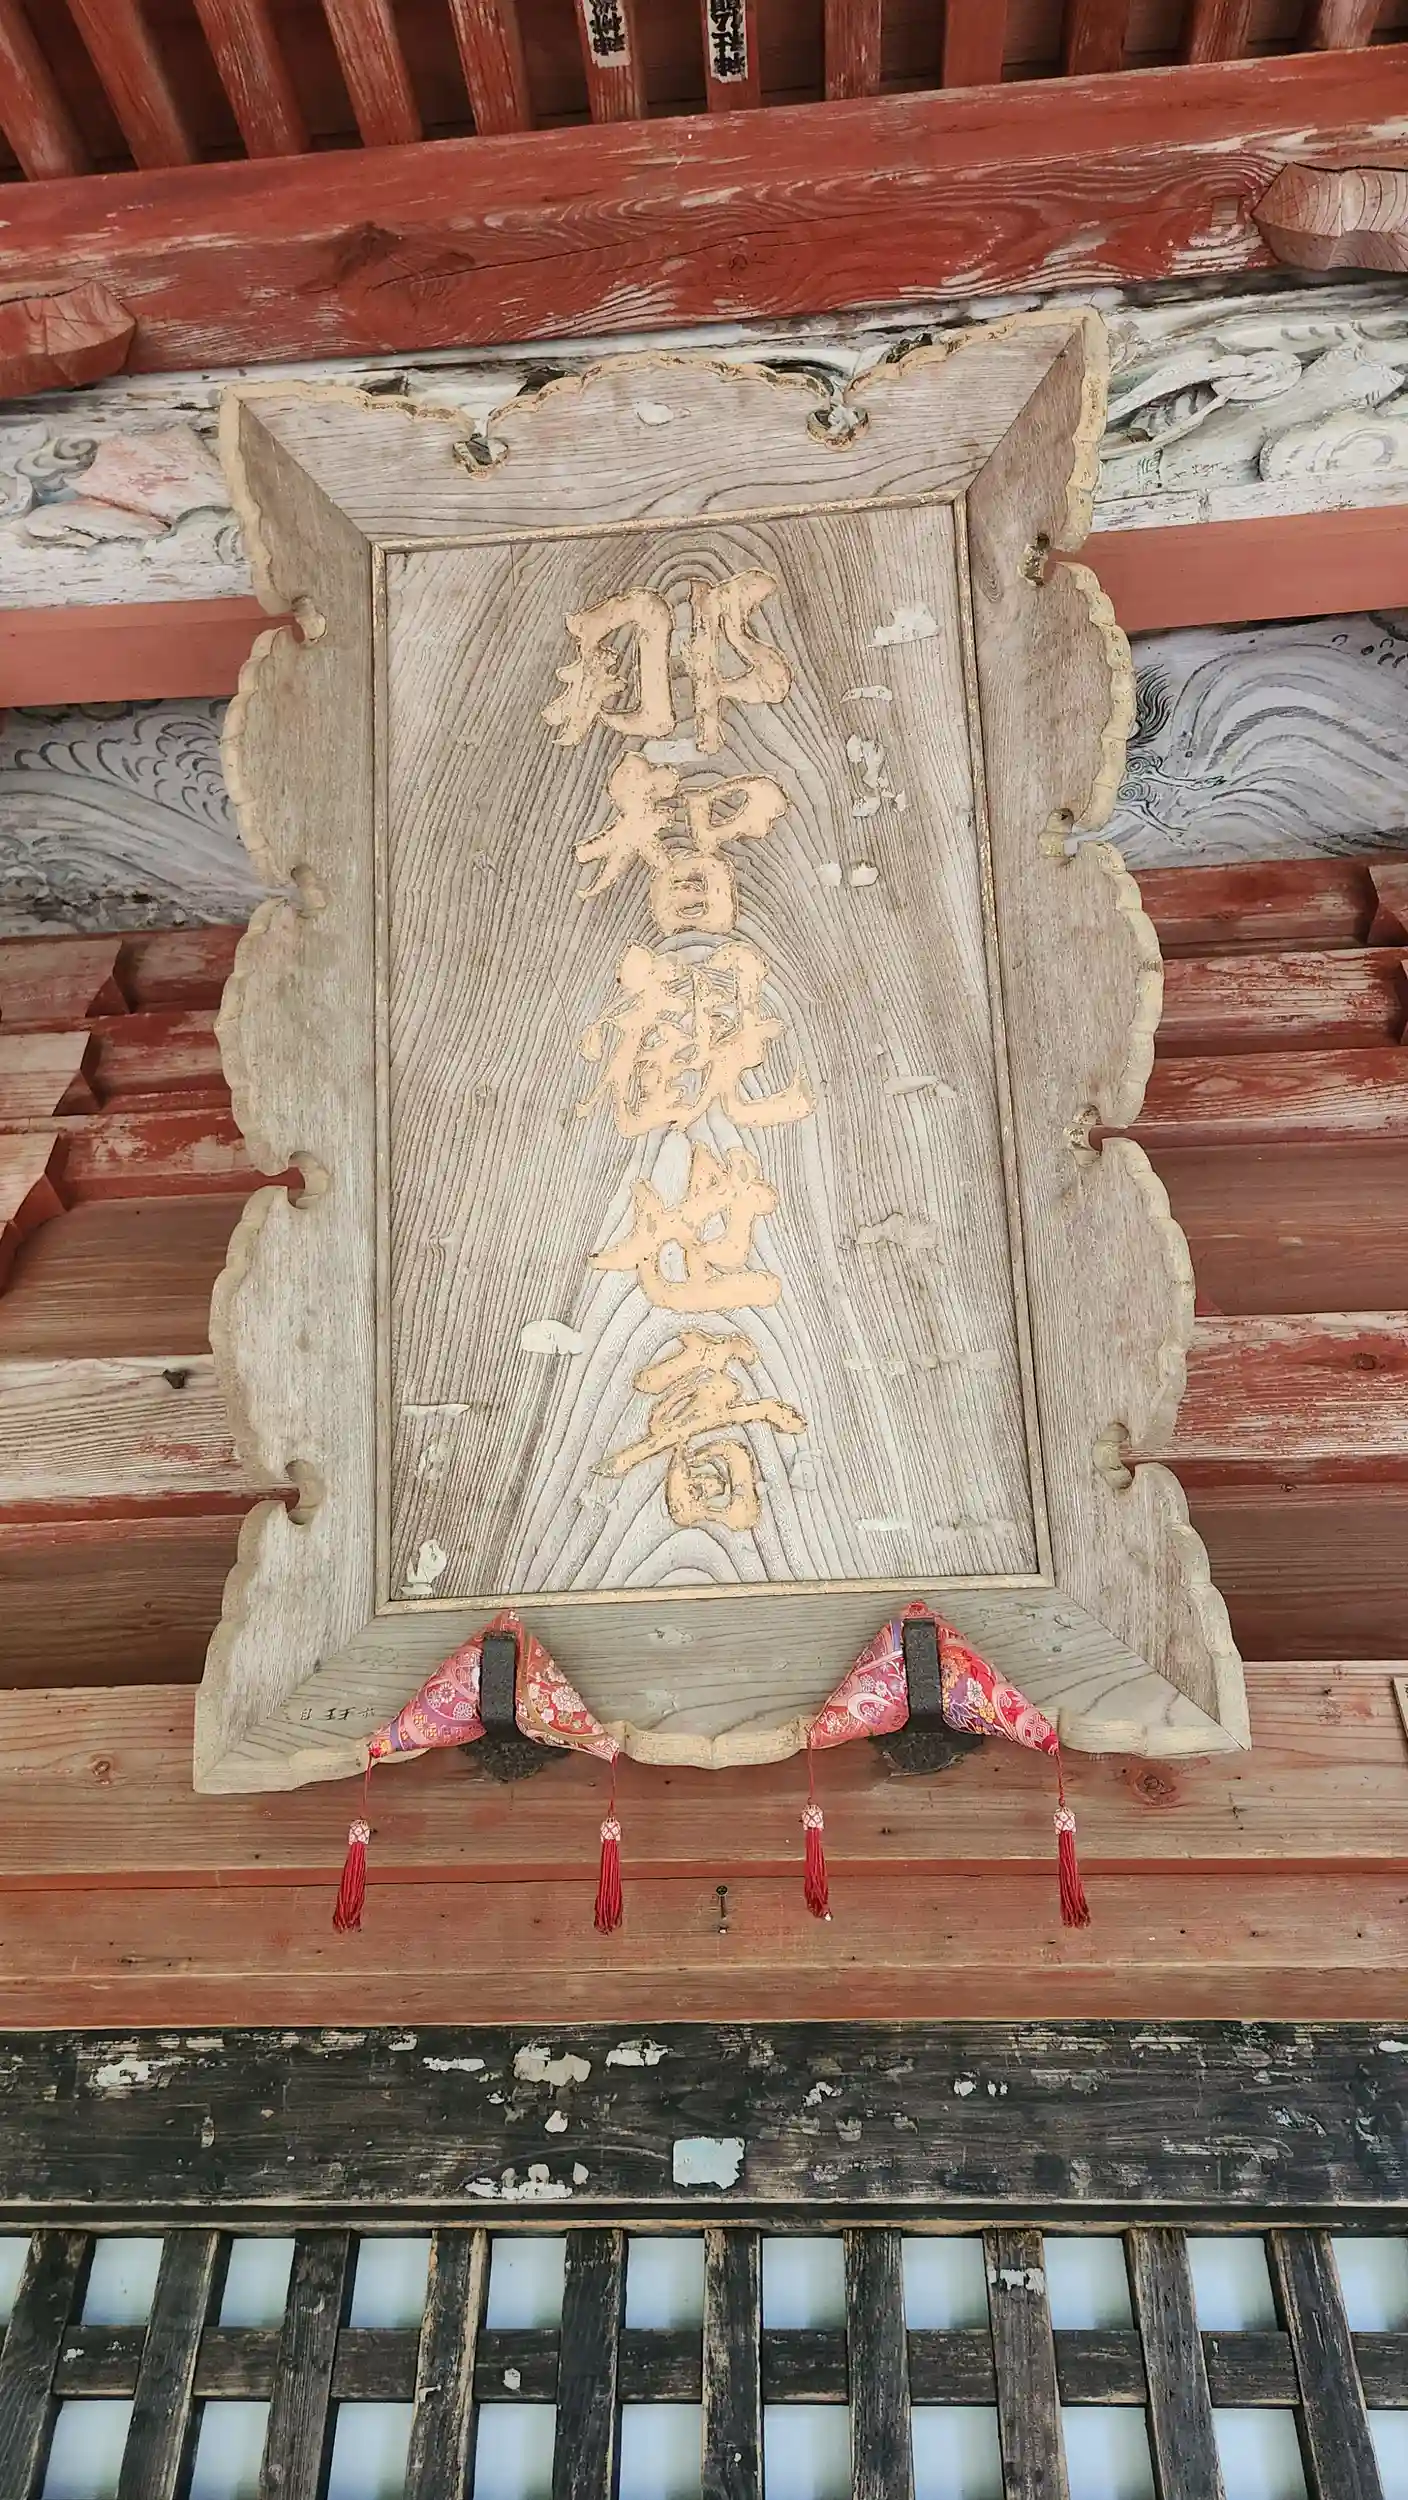 那智観世音